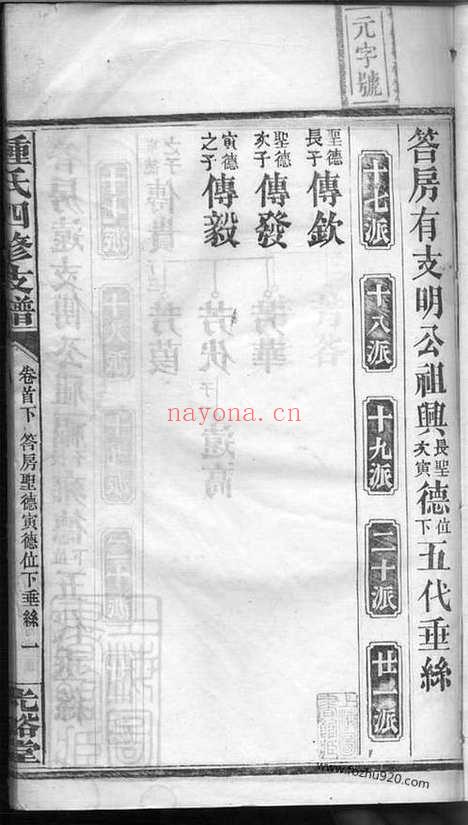 元字號
答房有支明公祖興長聖次寅德位下五代垂絲
十七派
十八派
十九派
二十派
廿一派
聖德長子傳欽
聖德次子傳發
寅德之子傳毅
鍾氏四修支譜
卷首下
答房聖德寅德位下垂絲
一
光裕堂
nayona.cn
www.fozhu920.com